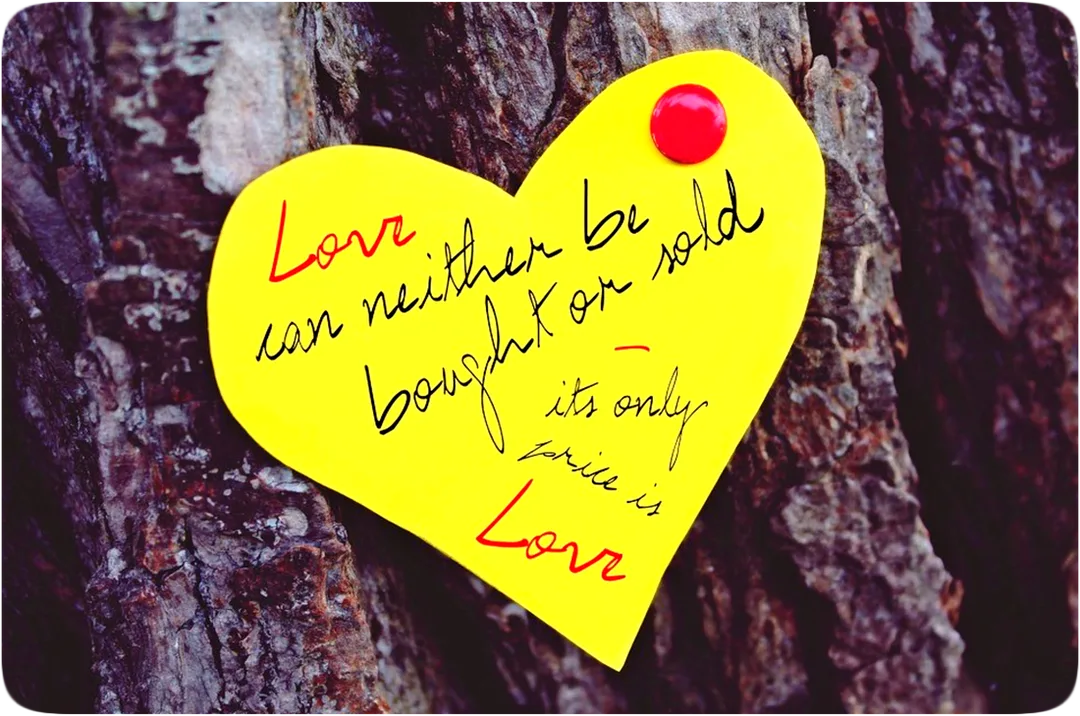 Love
can neither be
bought or sold
–
its only
price is
Love